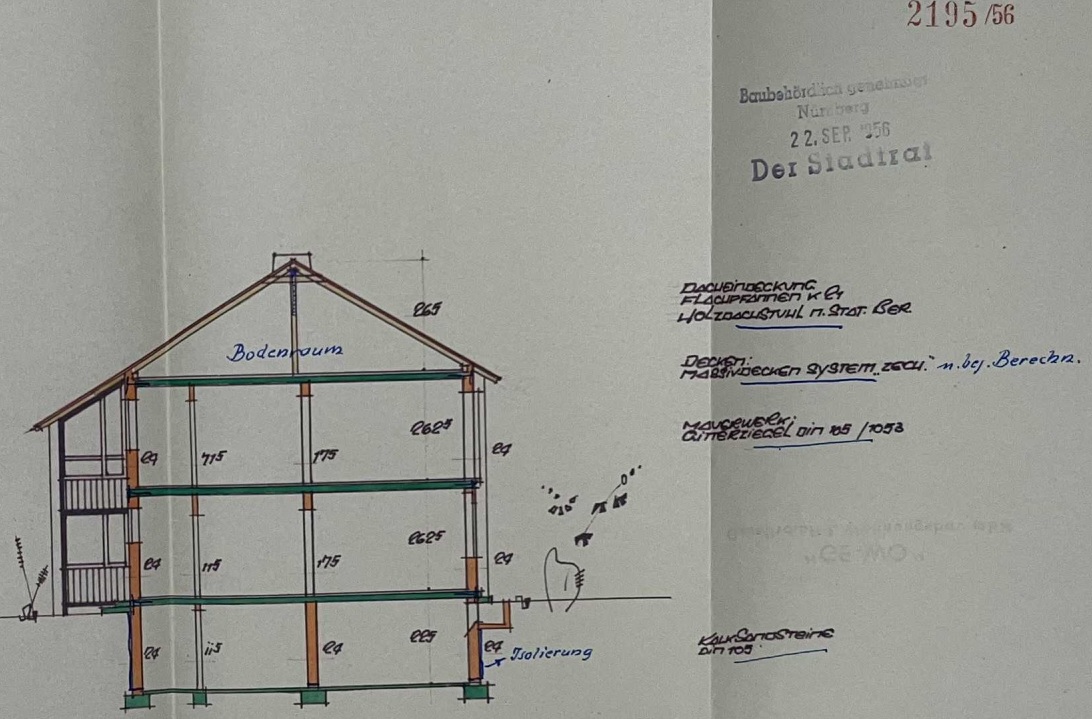 2195/56
Baubehördlich genehmigt
Nürnberg
22. SEP. 1956
Der Stadtrat
DACHEINDECKUNG
FLACHPFANNEN K e1
HOLZDACHSTUHL N. STAT. BER.
DECKEN:
MASSIVDECKEN SYSTEM „ZECH." n. bes. Berechn.
MAUERWERK:
GITTERZIEGEL DIN 105/1053
265
Bodenraum
2625
24 115 175 24
2625
24 115 175 24
225
24 115 24 24
Isolierung
KALKSANDSTEINE
DIN 105
"GE-WO"